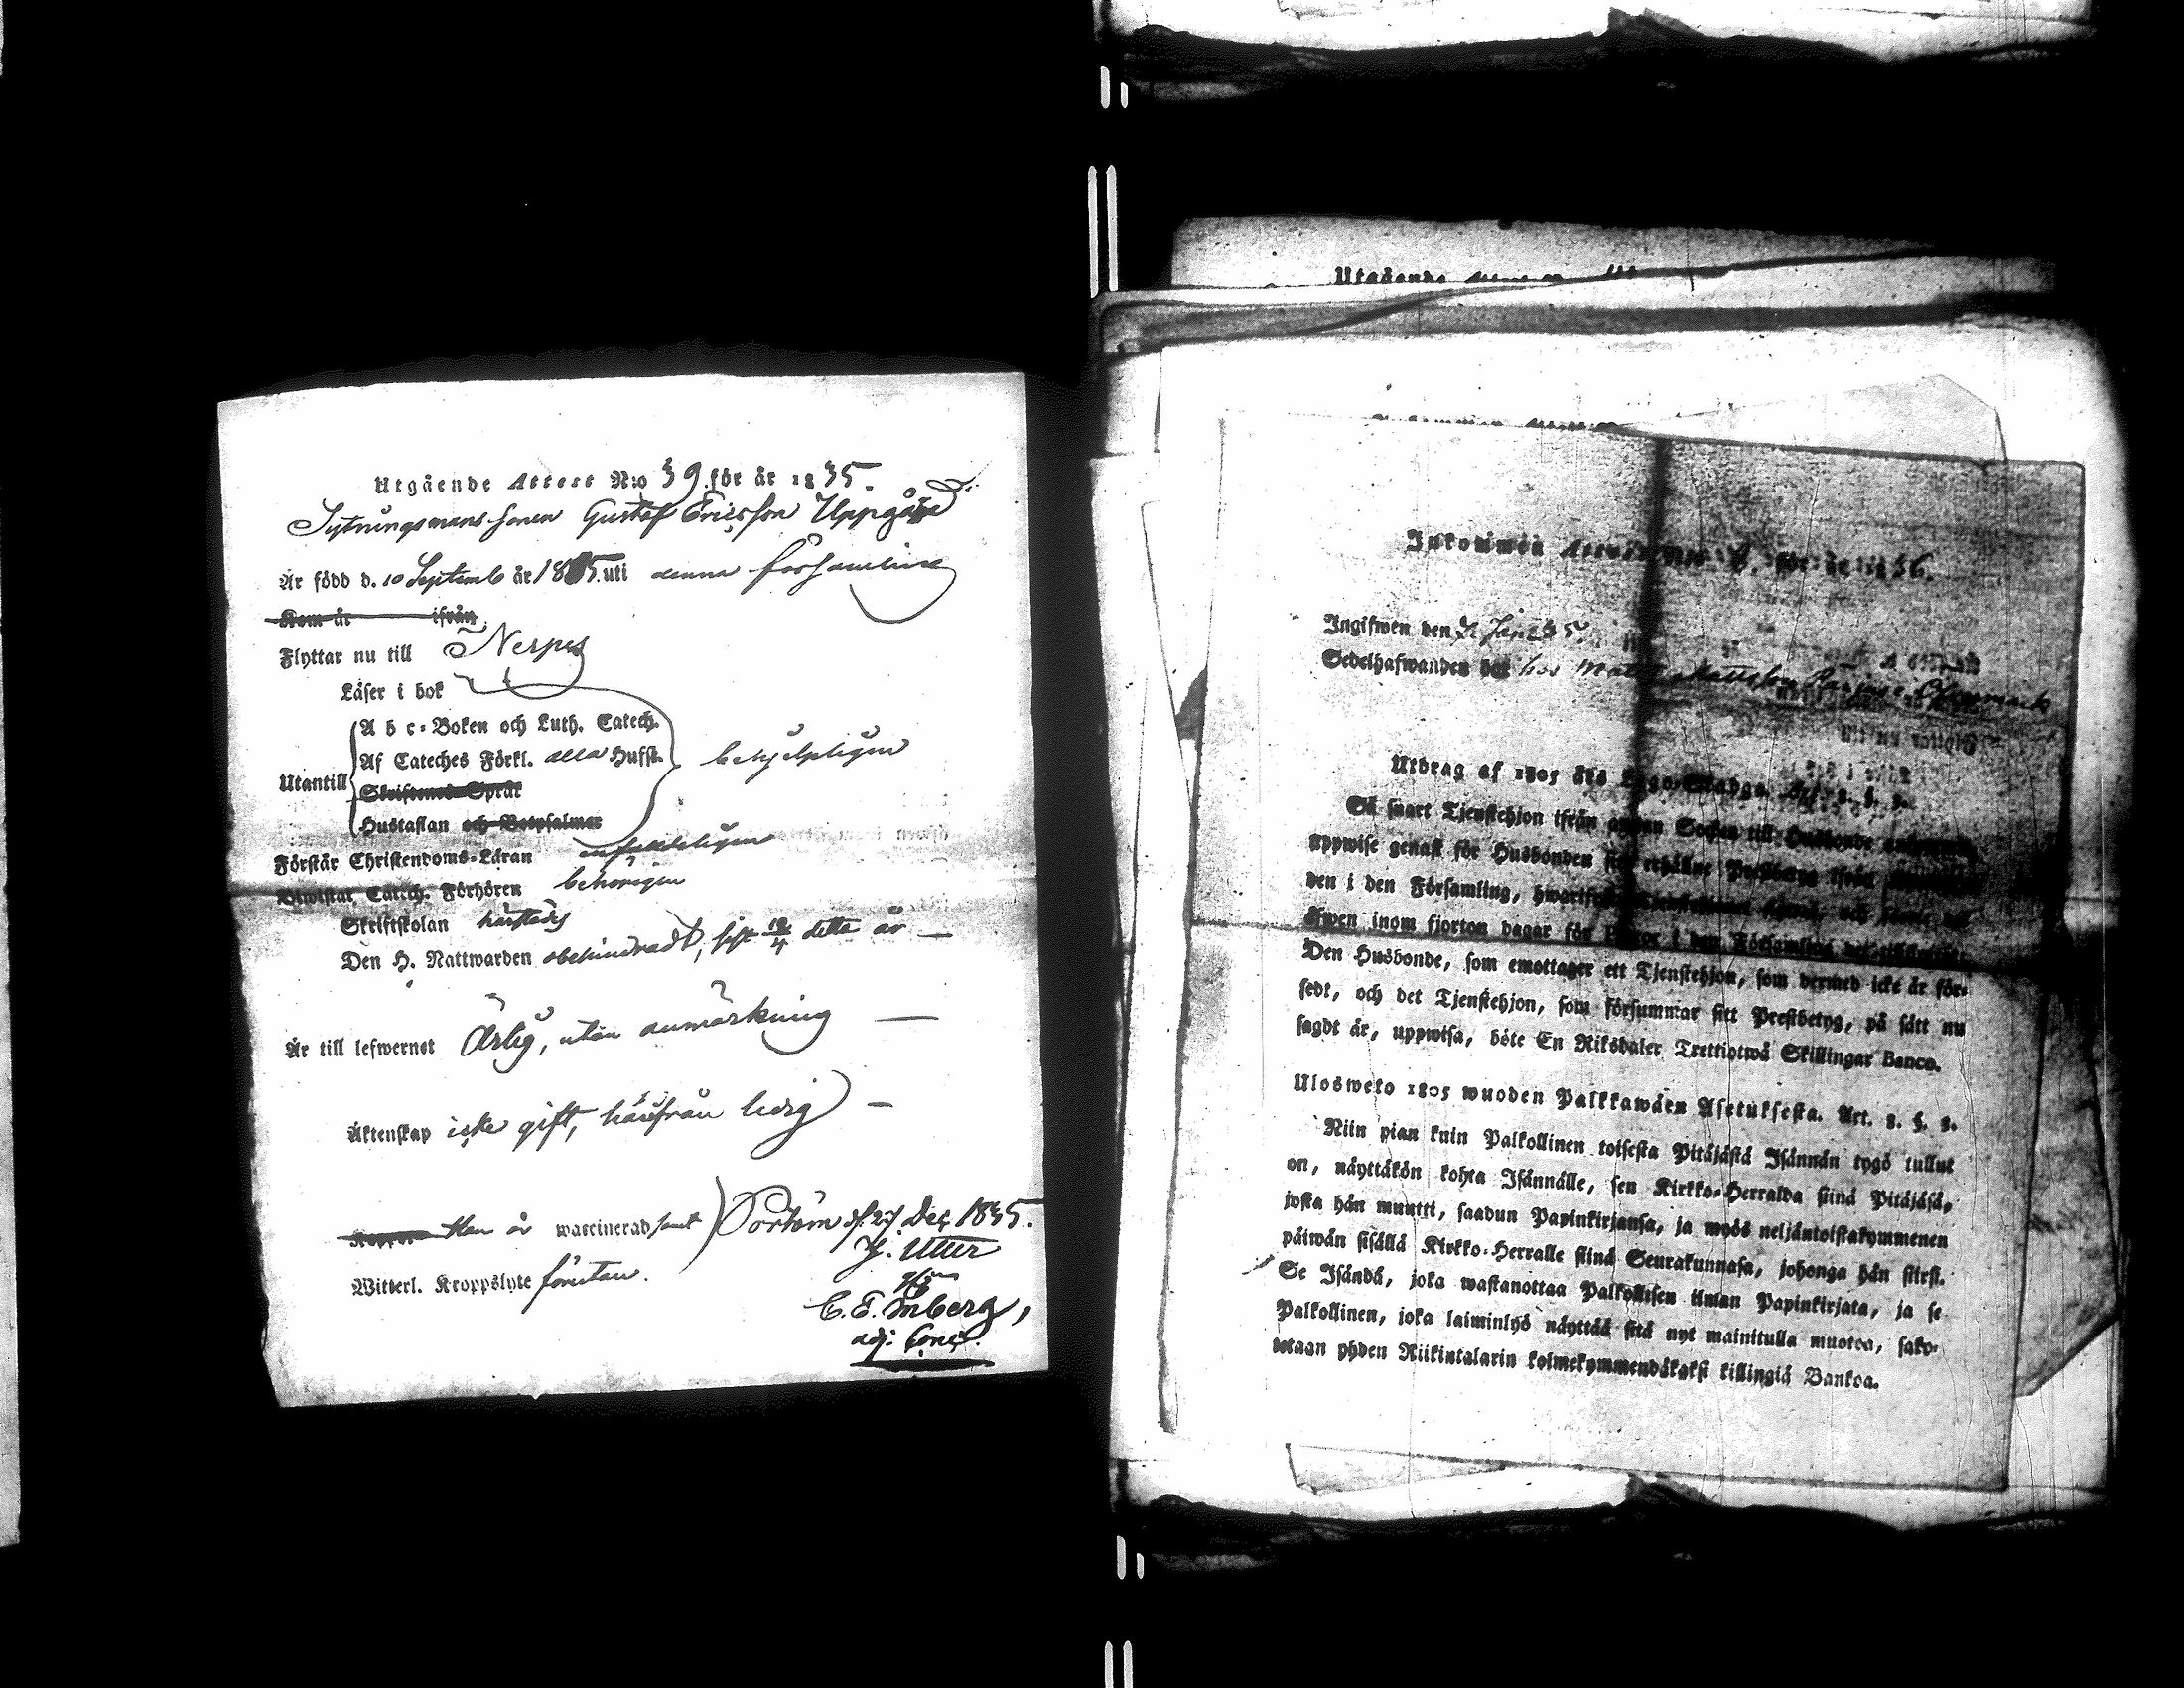 Utgående Attest N:o 39 för år 1835.
Sytningsmans-sonen Gustaf Ericsson Uppgård
Är född d. 10 Septemb år 1815 uti denna församling
Kom år ifrån
Flyttar nu till Nerpes
Läser i bok
Utantill
A b c-Boken och Luth. Catech.
Af Cateches Förkl. alla Hufst. behjelpligen
Skriftenes Språk
Hustaflan och Botpsalmer
Förstår Christendoms-Läran enfaldeligen
Biwistat Catech. Förhören behörigen
Skriftskolan härstädes
Den H. Nattwarden obehindradt, sist dette år —
Är till lefwernet Ärlig, utan anmärkning —
Äktenskap icke gift, härifrån ledig —
Han är waccinerad samt
Witterl. Kroppslyte förutan.
Portom d. 27 Dec. 1835.
J. Utter
C. E. Emberg,
adj: Conc.
Utgående
Inkommen för år 1836.
Ingifwen den Jan
Sedelhafwanden hos Mattsson
Utdrag af 1805 års Lego-Stadga. Art. 2. §. 2.
Så snart Tjenstehjon ifrån annan Socken till Husbonde
uppwise genast för Husbonden sitt erhållne Prestbetyg ifrån
den i den Församling, hwarifrån och
äfwen inom fjorton dagar för i den Församling
Den Husbonde, som emottager ett Tjenstehjon, som dermed icke är för-
sedt, och det Tjenstehjon, som försummar sitt Prestbetyg, på sätt nu
sagdt är, uppwisa, böte En Riksdaler Trettiotwå Skillingar Banco.
Ulosweto 1805 wuoden Palkkawäen Asetuksesta. Art. 2. §. 2.
Niin pian kuin Palkollinen toisesta Pitäjästä Isännän tygö tullut
on, näyttäkön kohta Isännälle, sen Kirkko-Herralda siinä Pitäjäsä,
josta hän muutti, saadun Papinkirjansa, ja myös neljäntoistakymmenen
päiwän sisällä Kirkko-Herralle siinä Seurakunnasa, johonga hän siirsi.
Se Isändä, joka wastanottaa Palkollisen ilman Papinkirjata, ja se
Palkollinen, joka laiminlyö näyttää sitä nyt mainitulla muotoa, sako-
tetaan yhden Riikintalarin kolmekymmendäkaksi killingiä Bankoa.